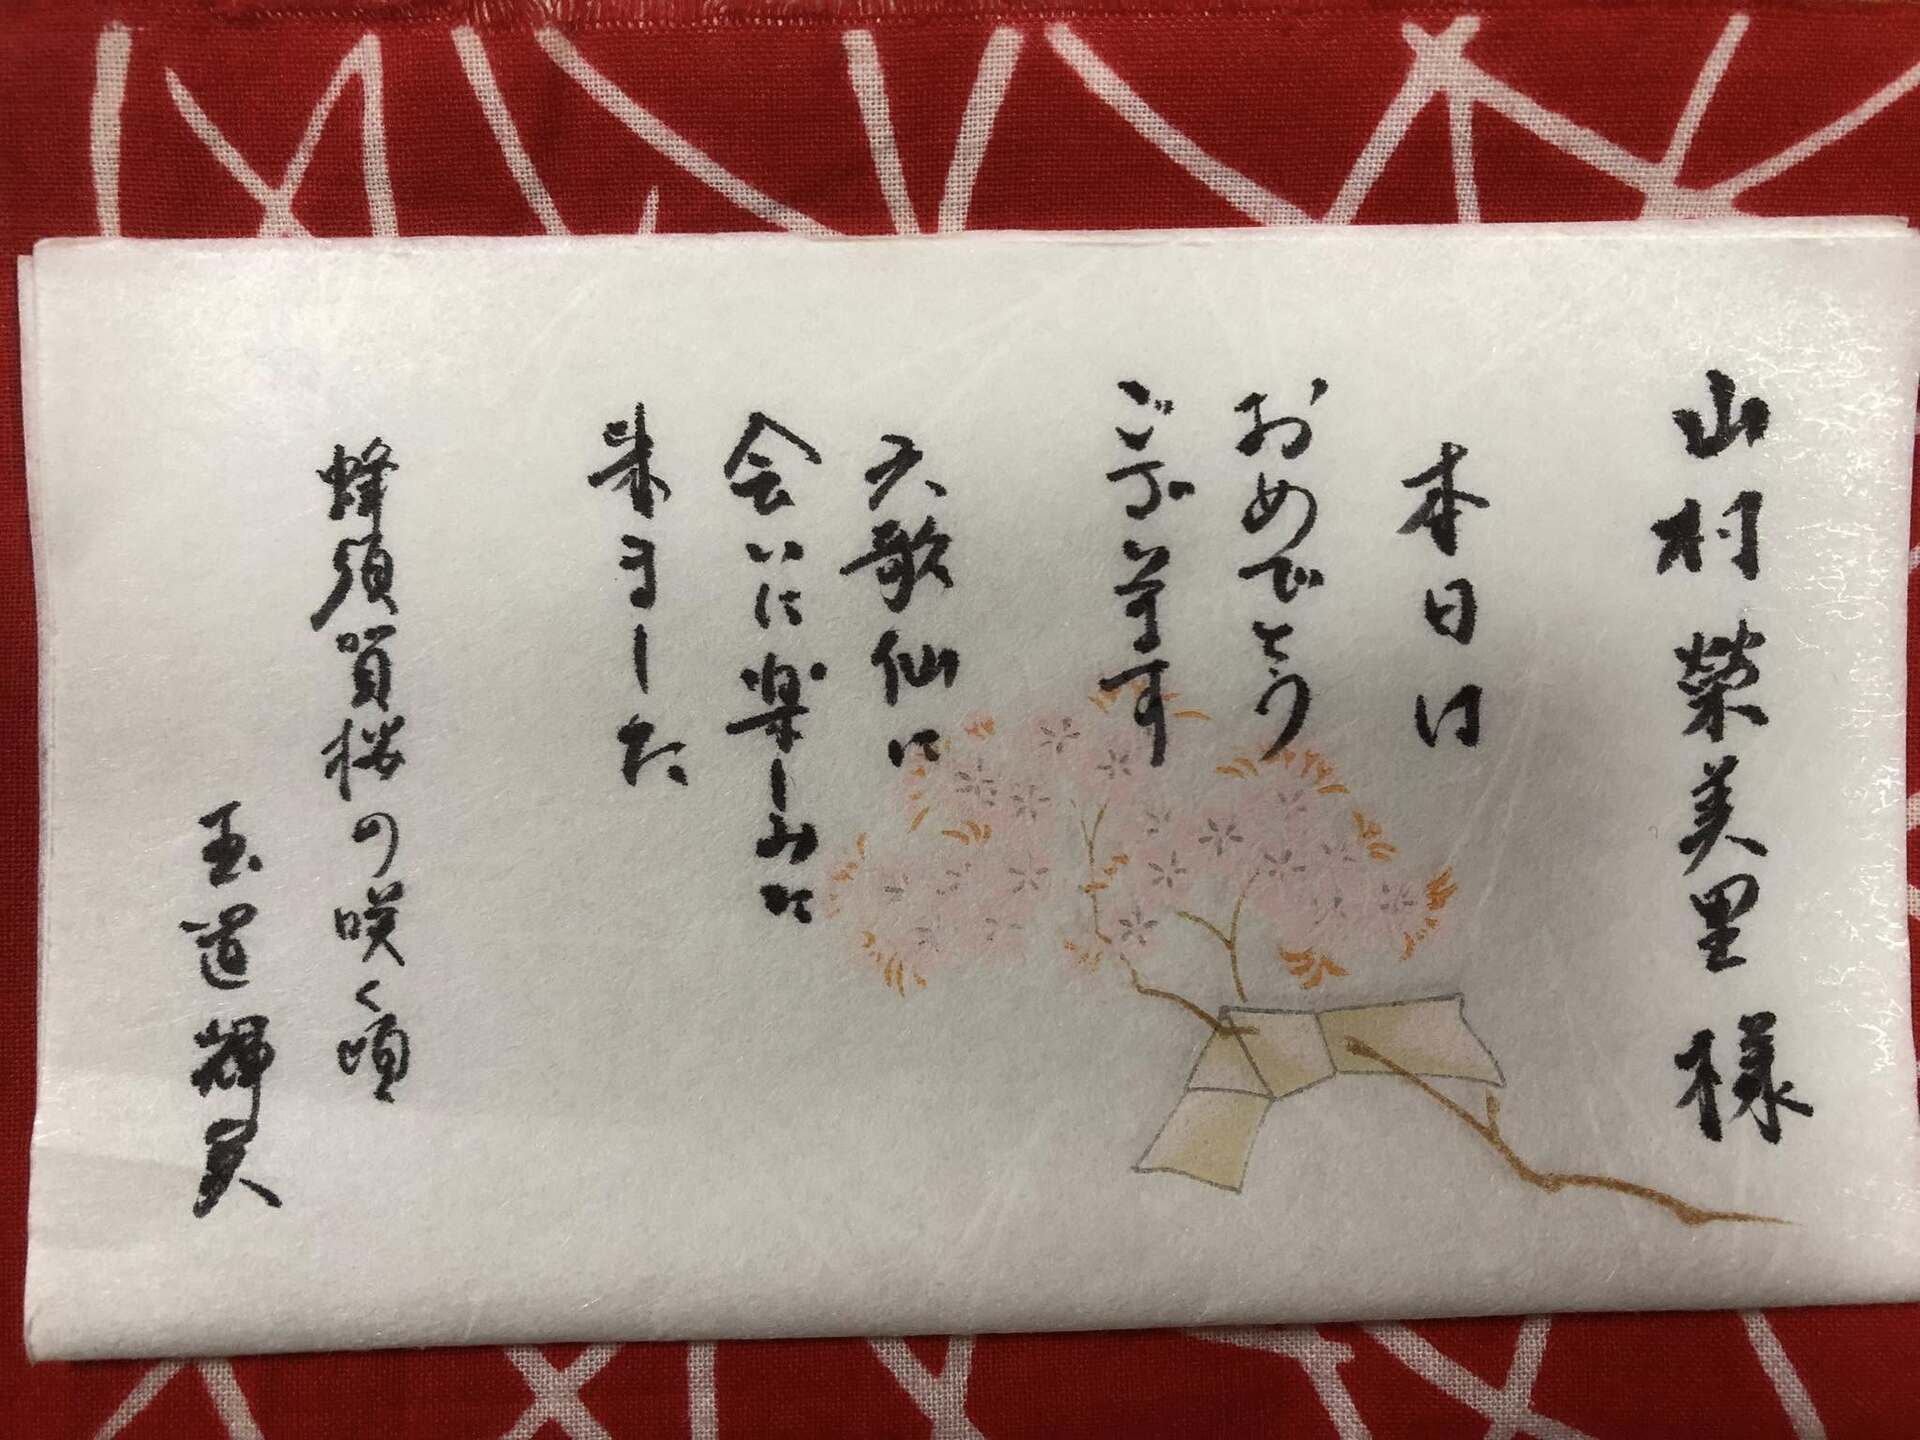 山村榮美里様
本日は
おめでとう
ございます
六歌仙に
会いに楽しみに
来ました
蜂須賀桜の咲く頃
玉置輝